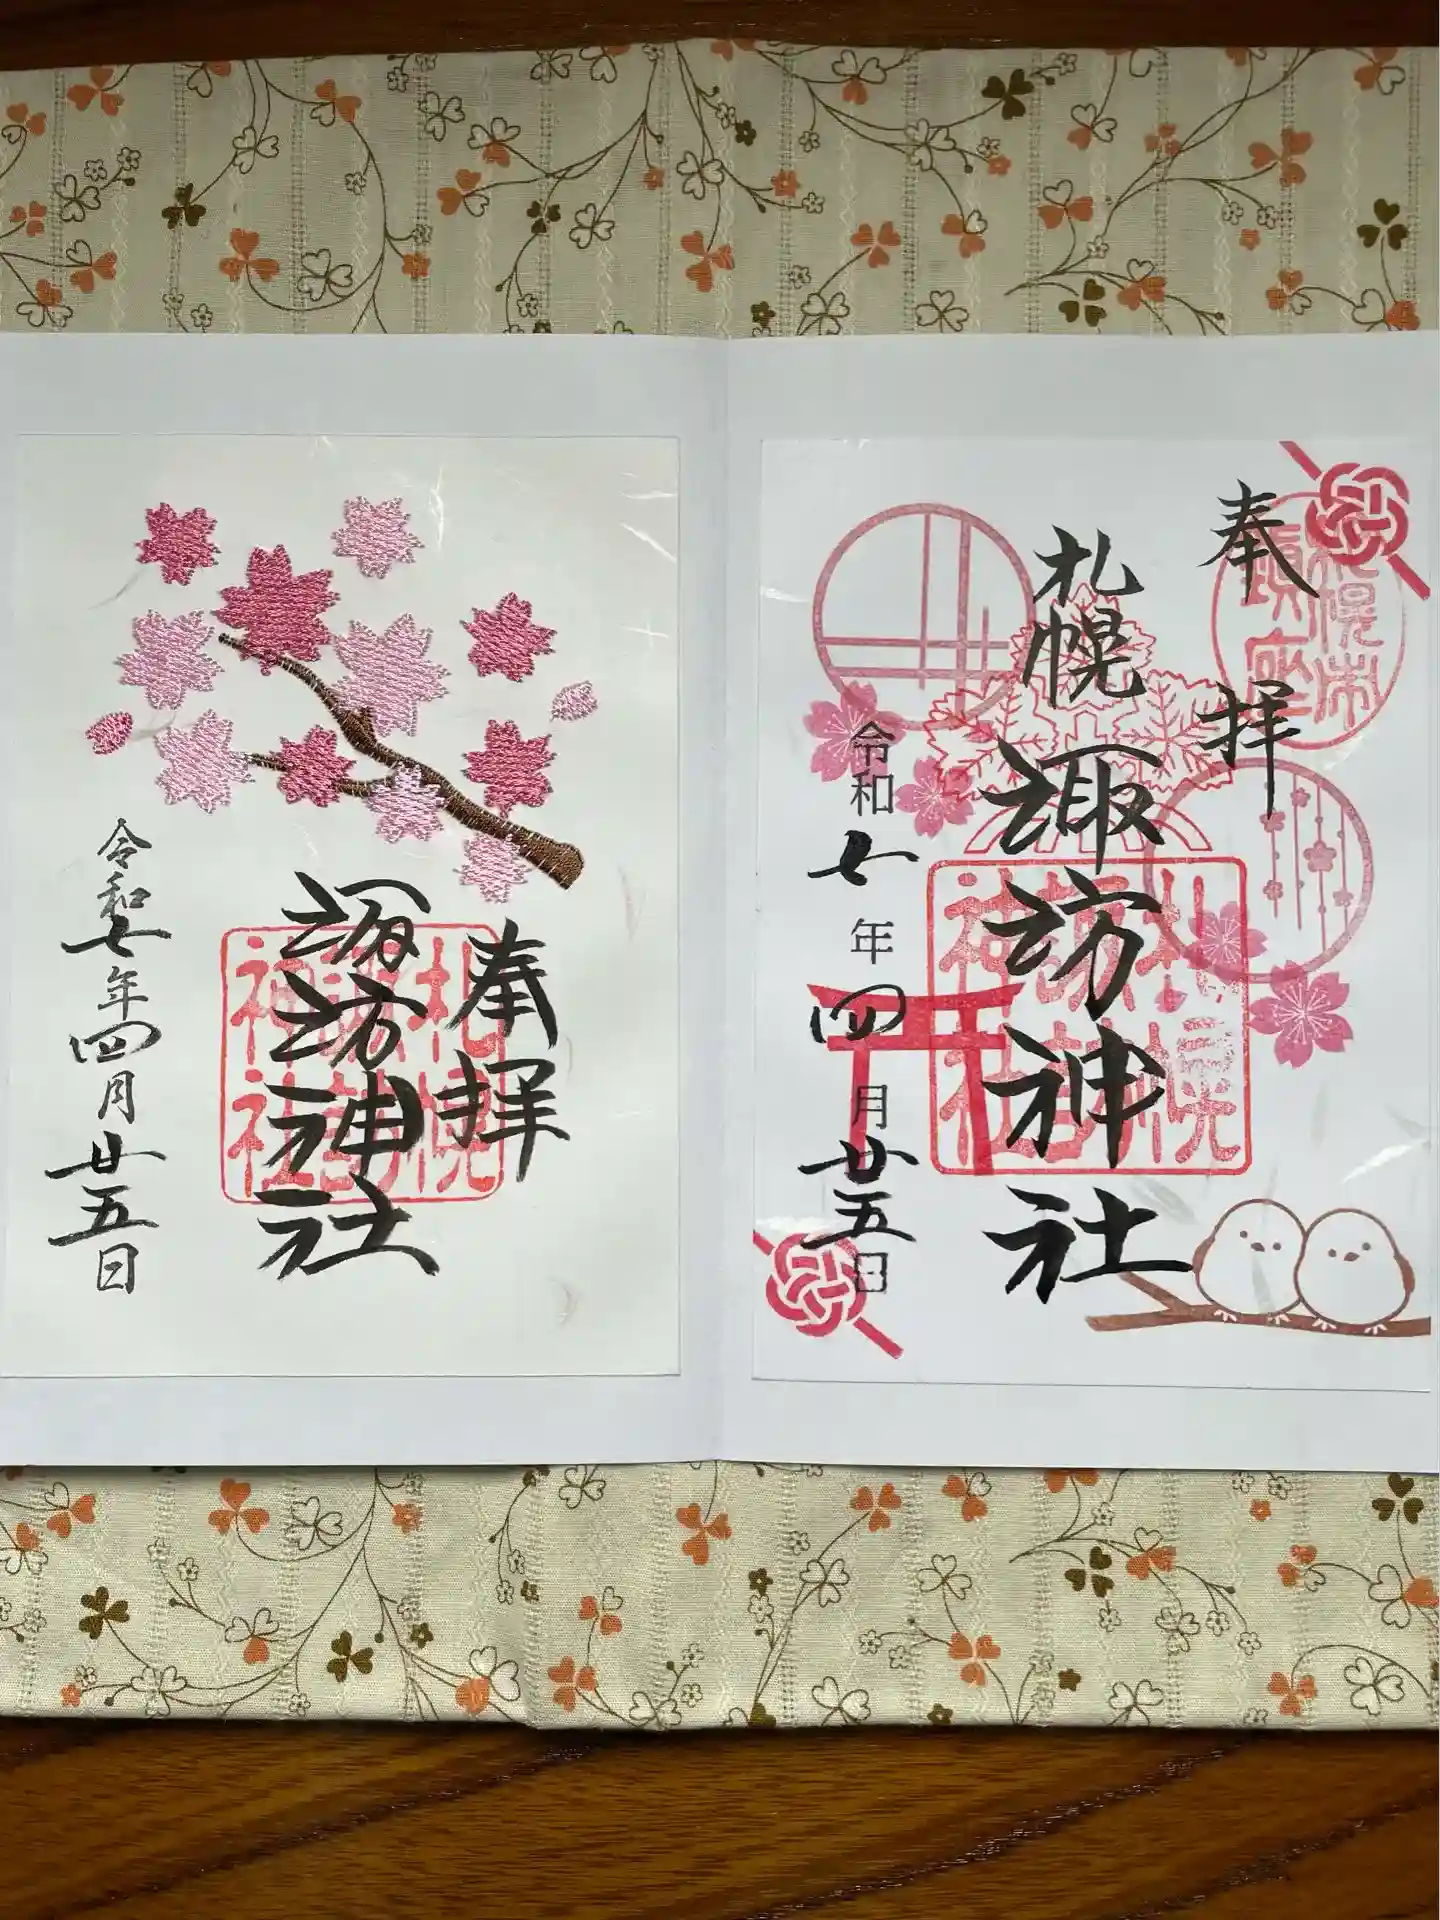 奉拝
札幌
諏訪神社
令和七年四月廿五日
札幌
諏訪
神社
札幌市
鎮座
奉拝
諏訪神社
令和七年四月廿五日
札幌
諏訪
神社